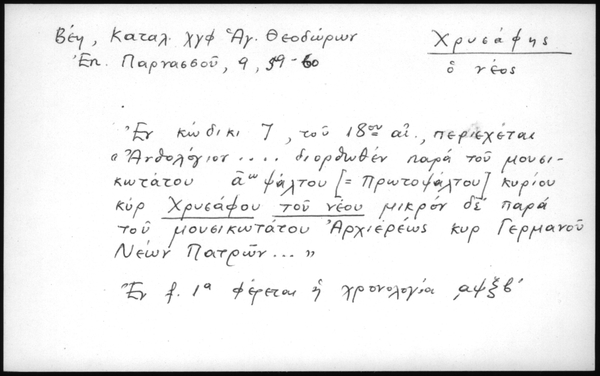 Βέη, Καταλ. χγφ Ἁγ. Θεοδώρων
Χρυσάφης
Ἐπ. Παρνασσοῦ, 9, 59-60
ὁ νέος
Ἐν κώδικι 7, τοῦ 18ου αἰ., περιέχεται
«Ἀνθολόγιον .... διορθωθέν παρά τοῦ μουσι-
κωτάτου ᾱω ψάλτου [= Πρωτοψάλτου] κυρίου
κύρ Χρυσάφου τοῦ νέου μικρόν δέ παρά
τοῦ μουσικωτάτου Ἀρχιερέως κυρ Γερμανοῦ
Νέων Πατρῶν... »
Ἐν f. 1α φέρεται ἡ χρονολογία ͵αψξβ'